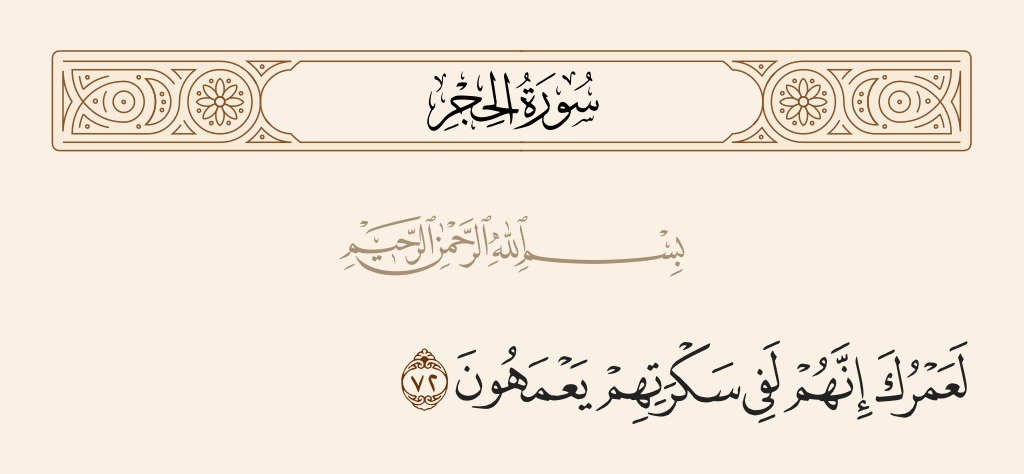 سُورَةُ الحِجْرِ
بِسْمِ ٱللَّهِ ٱلرَّحْمَٰنِ ٱلرَّحِيمِ
لَعَمْرُكَ إِنَّهُمْ لَفِي سَكْرَتِهِمْ يَعْمَهُونَ ٧٢